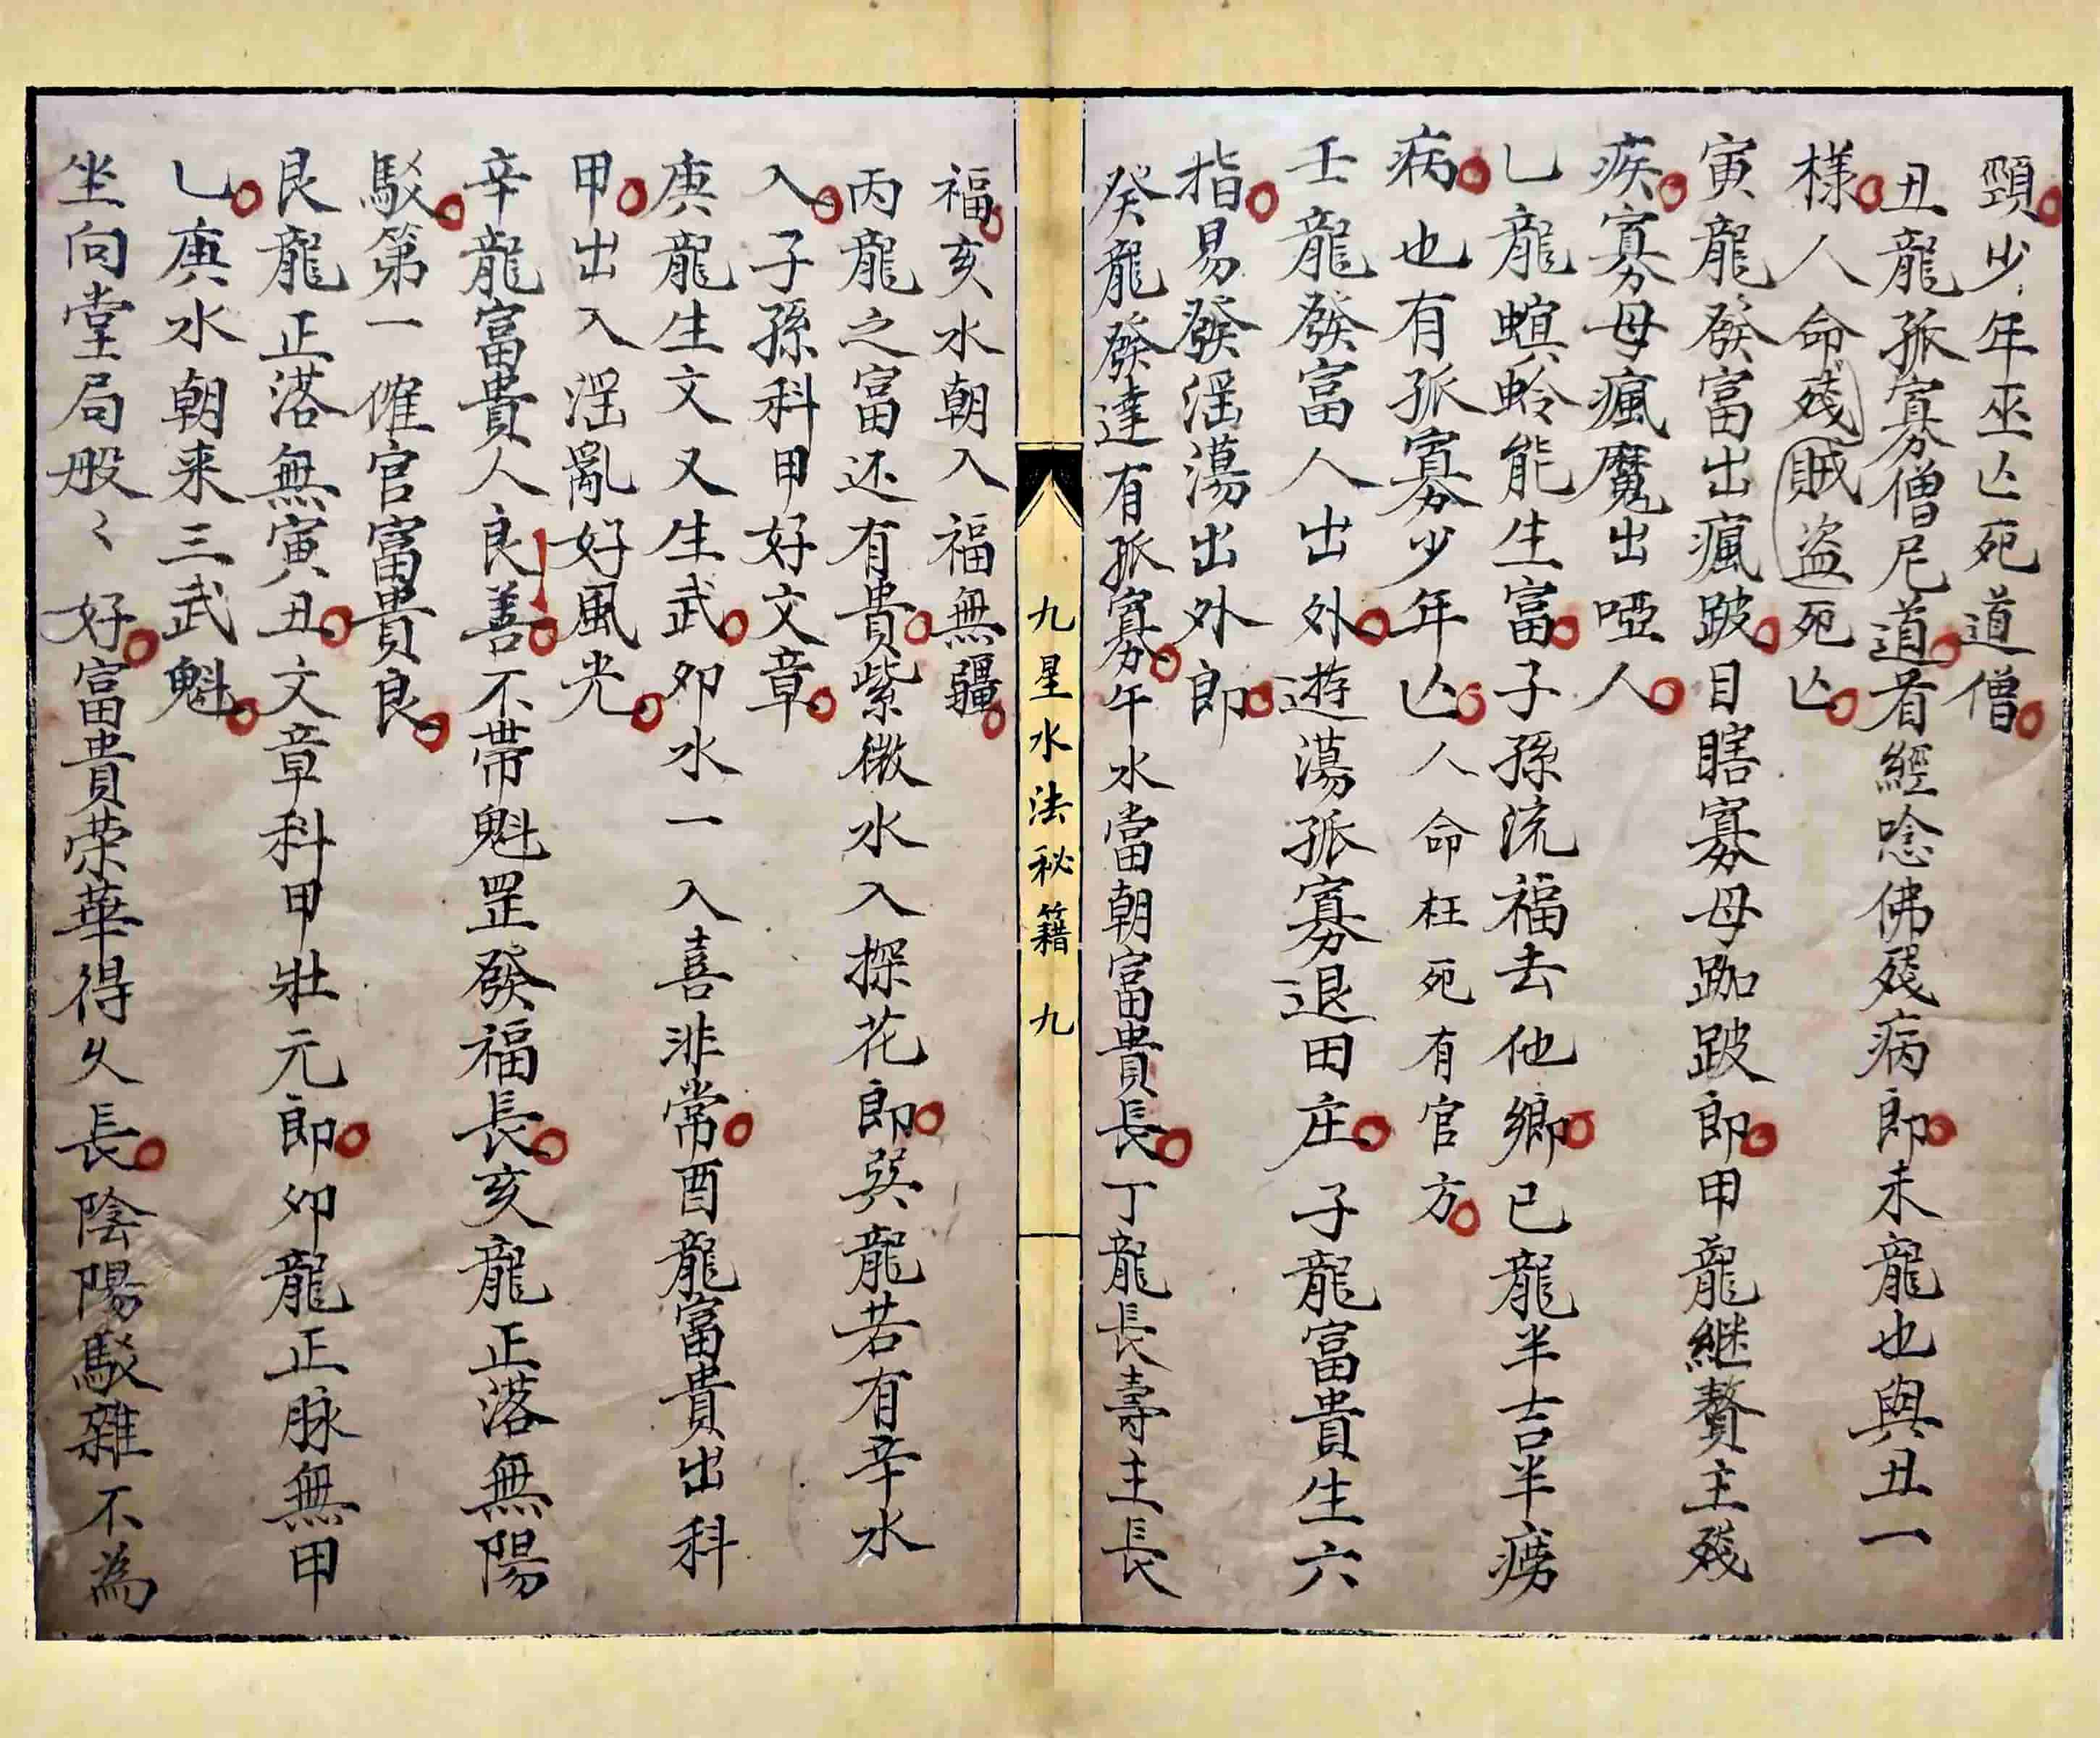 頸少年巫亾死道僧
丑龍孤寡僧尼道看經唸佛殘病郎未龍也與丑一
樣人命殘賊盗死亾
寅龍發富出瘋跛目瞎寡母跏跛郎甲龍継贅主殘
疾寡母瘋魔出啞人
乚龍螟蛉能生富子孫流福去他鄉已龍半吉半癆
病也有孤寡少年亾人命枉死有官方
壬龍發富人出外遊蕩孤寡退田庄子龍富貴生六
指易發滛蕩出外郎
癸龍發達有孤寡午水當朝富貴長丁龍長壽主長
九星水法秘籍 九
福亥水朝入福無疆
丙龍之富还有貴紫微水入探花郎巽龍若有辛水
入子孫科甲好文章
庚龍生文又生武夘水一入喜非常酉龍富貴出科
甲出入滛亂好風光
辛龍富貴人良善不帶魁罡發福長亥龍正落無陽
駁第一催官富貴良
艮龍正落無寅丑文章科甲壯元郎夘龍正脉無甲
乚庚水朝来三武魁
坐向堂局般〻好富貴荣華得久長陰陽駁雜不為